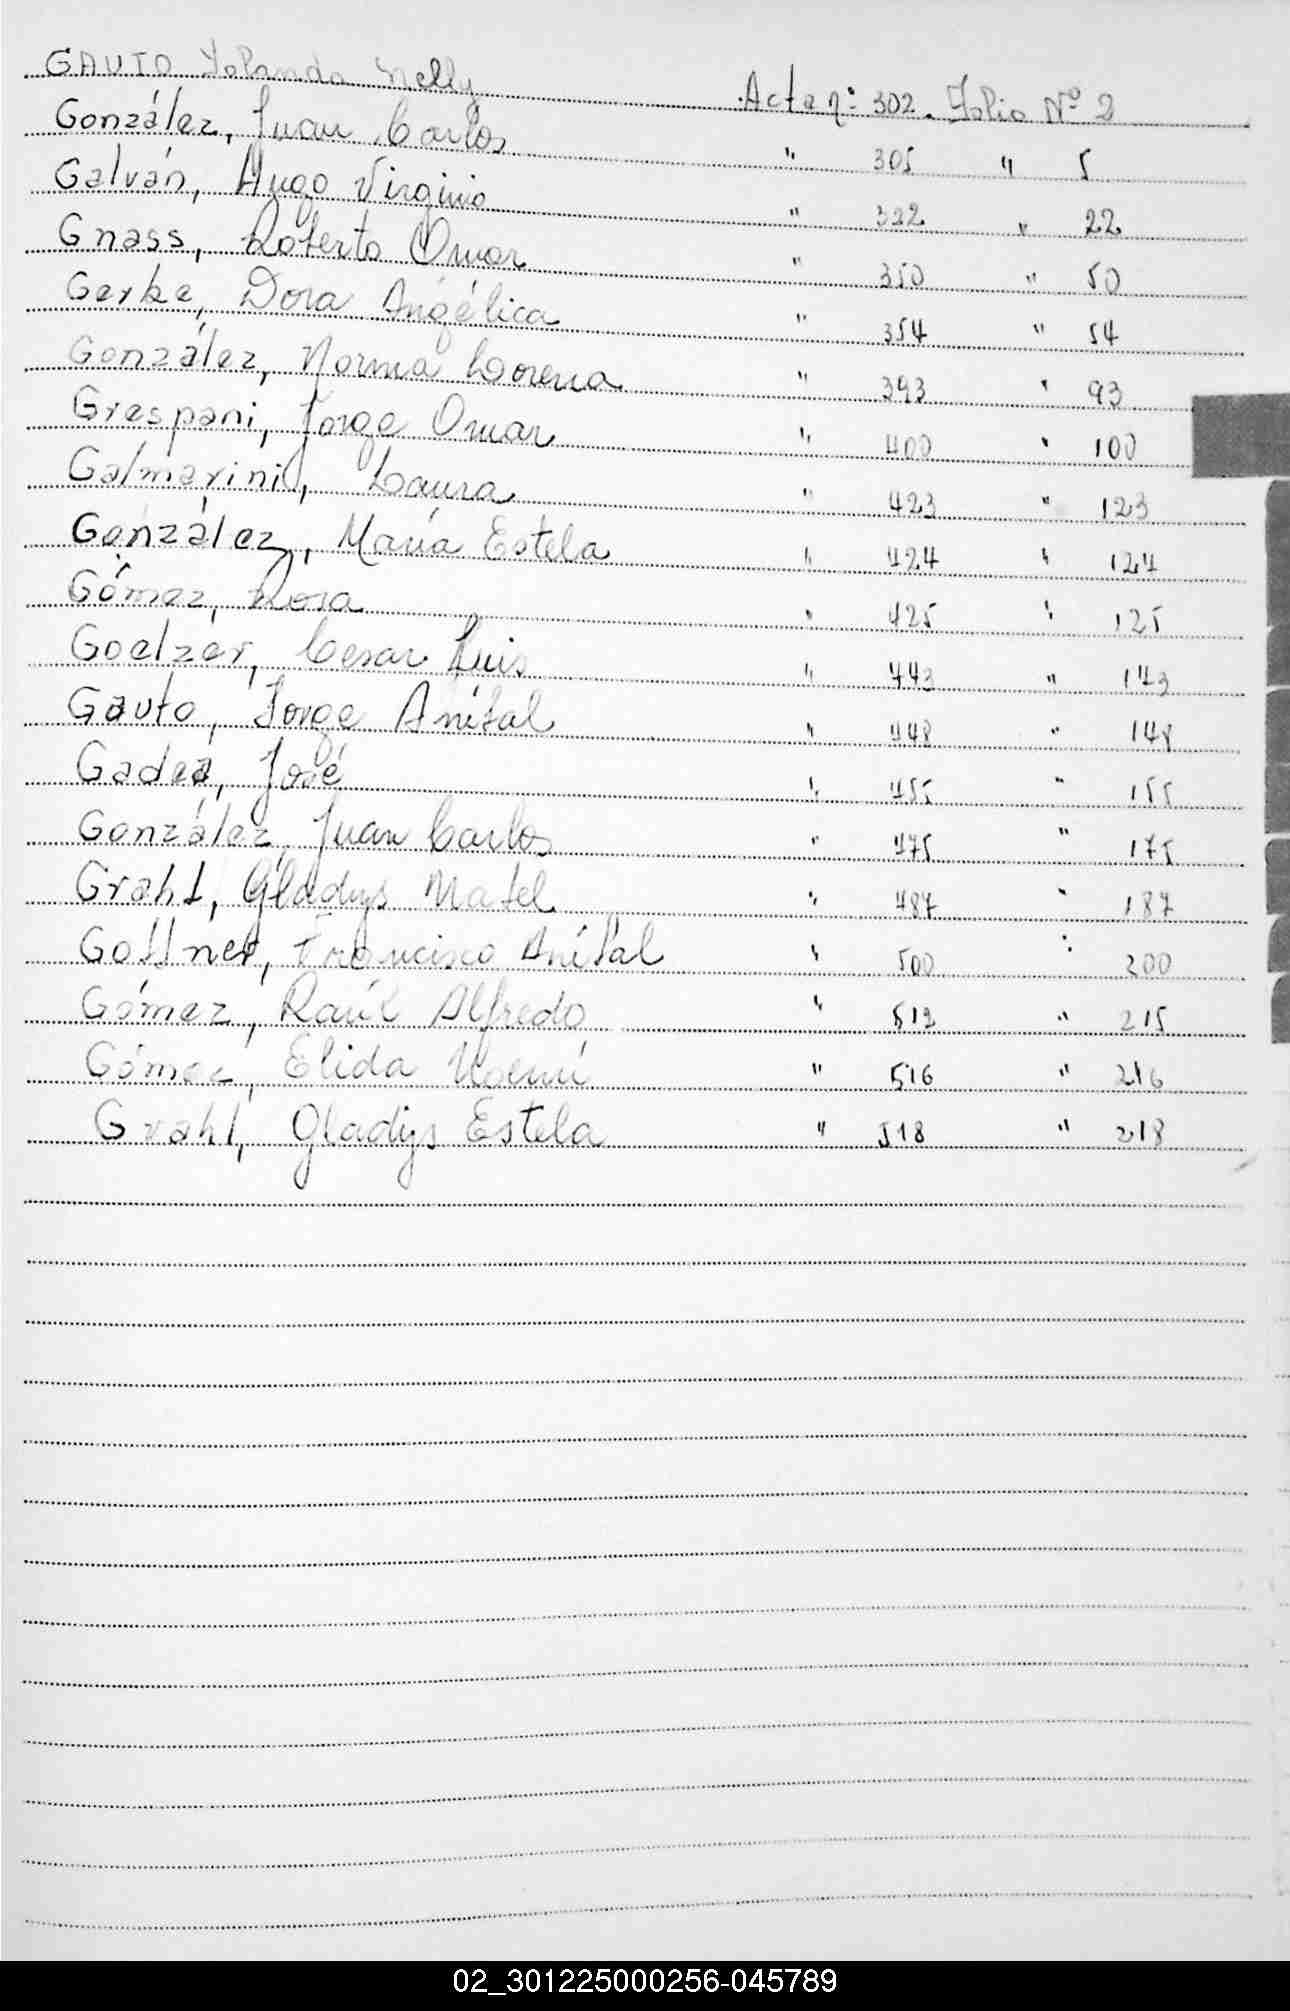 GAUTO Yolanda Nelly Acta nº: 302. Folio Nº 2
González, Juan Carlos " 305 " 5
Galván, Hugo Virginio " 322 " 22
Gnass, Roberto Omar " 350 " 50
Gerke, Dora Angélica " 354 " 54
González, Norma Lorena " 393 " 93
Grespani, Jorge Omar " 400 " 100
Galmarini, Laura " 423 " 123
González, María Estela " 424 " 124
Gómez, Rosa " 425 " 125
Goelzer, Cesar Luis " 443 " 143
Gauto, Jorge Aníbal " 448 " 148
Gadea, José " 455 " 155
González, Juan Carlos " 475 " 175
Grahl, Gladys Mabel " 487 " 187
Francisco Aníbal " 500 " 200
Gómez, Raúl Alfredo " " 215
Gómez, Elida Noemí " 516 " 216
Grahl, Gladys Estela " 518 " 218
02_301225000256-045789